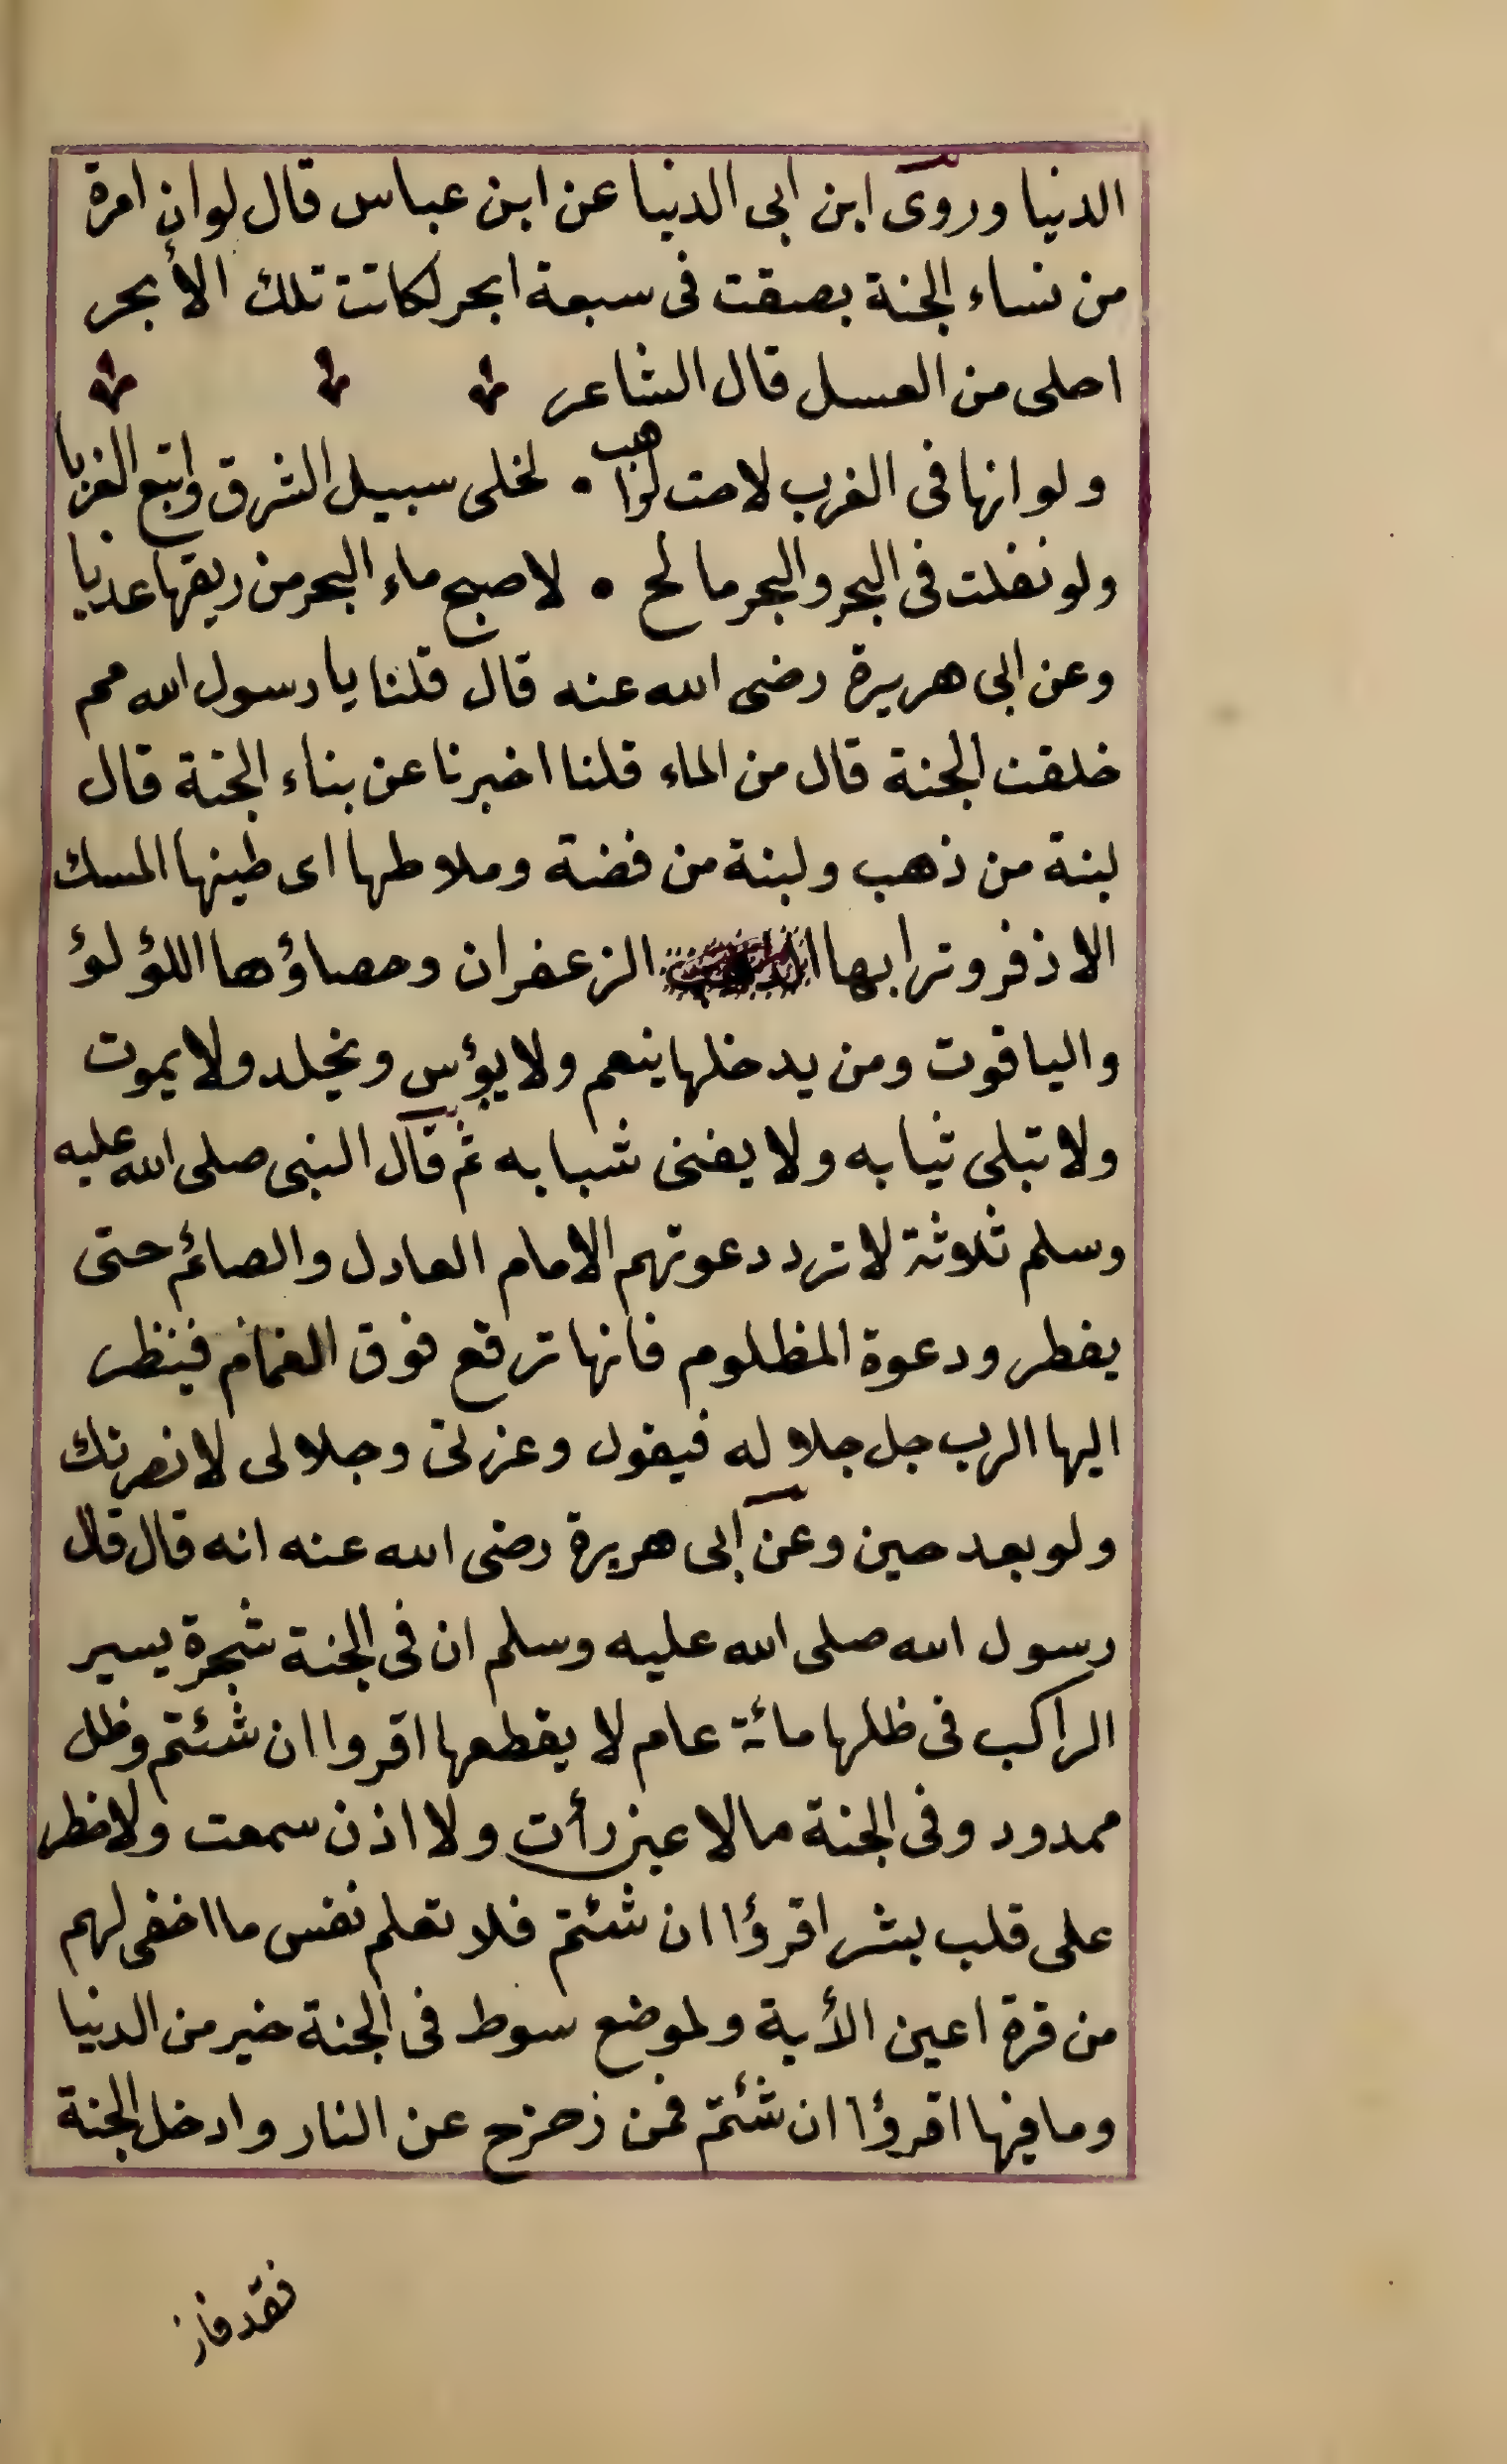 الدنيا وروى ابن ابى الدنيا عن ابن عباس قال لوان امرة
من نساء الجنة بصقت فى سبعة ابحر لكانت تلك الأبحر
احلى من العسل قال الشاعر
ولو انها فى الغرب لاحت لراهب • لخلى سبيل الشرق واتبع الغربا
ولو نفلت فى البحر والبحر مالح • لاصبح ماء البحر من ريقها عذبا
وعن ابى هريرة رضى الله عنه قال قلنا يا رسول الله مم
خلقت الجنة قال من الماء قلنا اخبرنا عن بناء الجنة قال
لبنة من ذهب ولبنة من فضة وملاطها اى طينها المسك
الاذفر وترابها الزعفران وحصاؤها اللؤلؤ
والياقوت ومن يدخلها ينعم ولا يبؤس ويخلد ولا يموت
ولا تبلى ثيابه ولا يفنى شبابه ثم قال النبى صلى الله عليه
وسلم ثلاثة لا ترد دعوتهم الامام العادل والصائم حتى
يفطر ودعوة المظلوم فانها ترفع فوق الغمام فينظر
اليها الرب جل جلاله فيقول وعزتى وجلالى لانصرنك
ولو بعد حين وعن ابى هريرة رضى الله عنه انه قال قال
رسول الله صلى الله عليه وسلم ان فى الجنة شجرة يسير
الراكب فى ظلها مائة عام لا يقطعها اقروا ان شئتم وظل
ممدود وفى الجنة مالا عين رأت ولا اذن سمعت ولا خطر
على قلب بشر اقرؤا ان شئتم فلا تعلم نفس ما اخفى لهم
من قرة اعين الأية ولموضع سوط فى الجنة خير من الدنيا
وما فيها اقرؤا ان شئتم فمن زحزح عن النار وادخل الجنة
فقد فاز